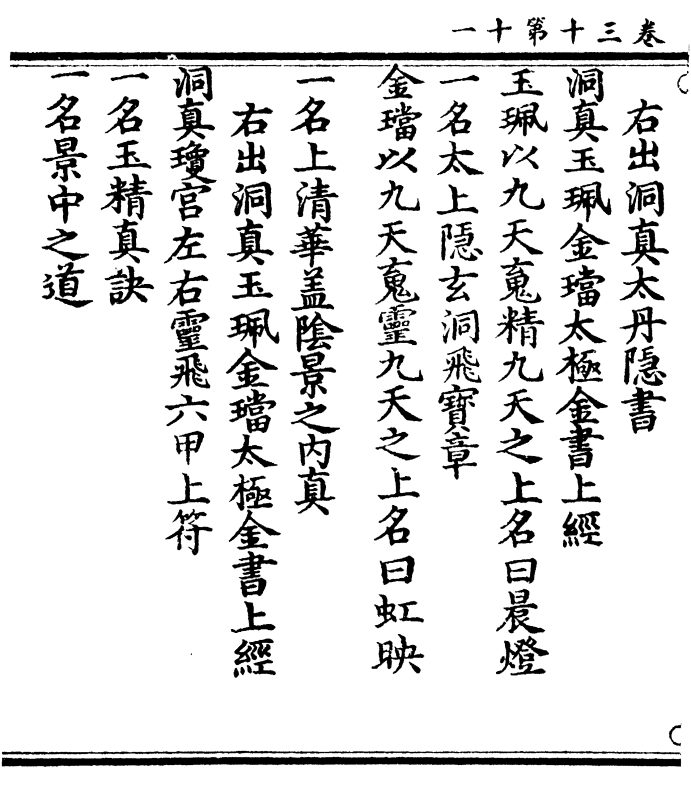 卷三十第十一
右出洞真太丹隱書
洞真玉珮金璫太極金書上經
玉珮以九天䰟精九天之上名曰晨燈
一名太上隱玄洞飛寶章
金璫以九天䰟靈九天之上名曰虹映
一名上清華盖陰景之內真
右出洞真玉珮金璫太極金書上經
洞真瓊宮左右靈飛六甲上符
一名玉精真訣
一名景中之道